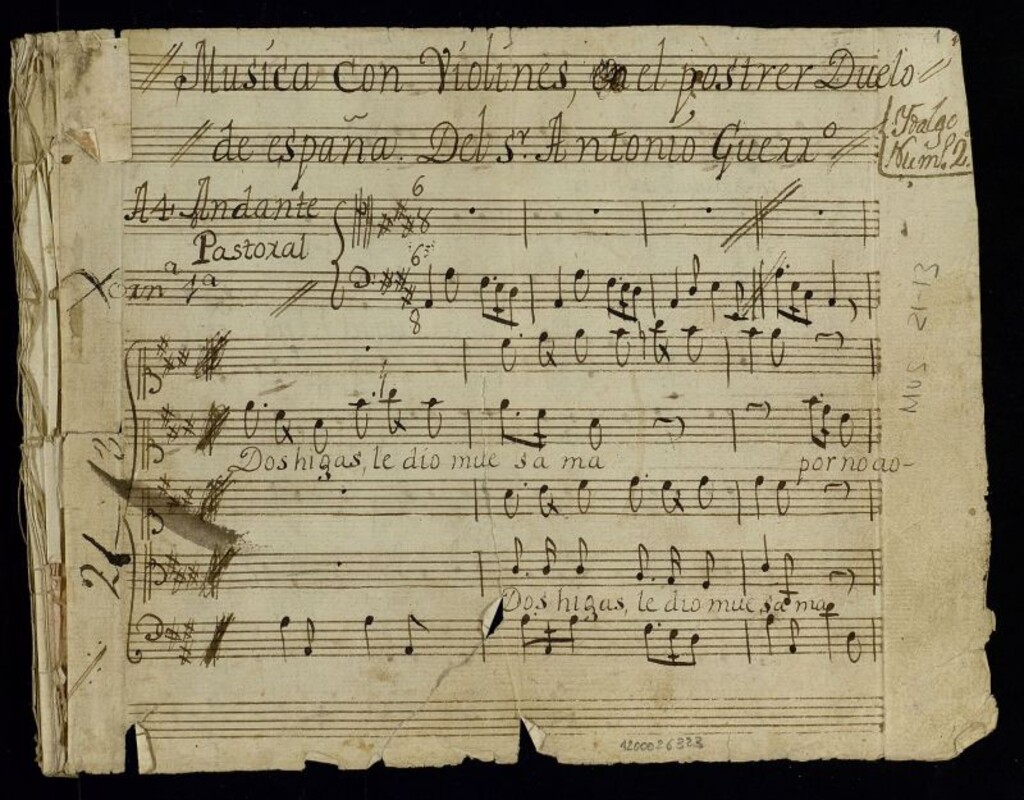 Musica con Violines, en el postrer Duelo
de españa. Del Sr. Antonio Guerro
Ydalgo
Num. 2.
A4 Andante
Pastoral
6
8
6
8
Jorna 1ª
Dos higas, le dio mue sa ma
por no ao-
Dos higas, le dio mue sa ma
MUS 21-13
21
13
1200026323